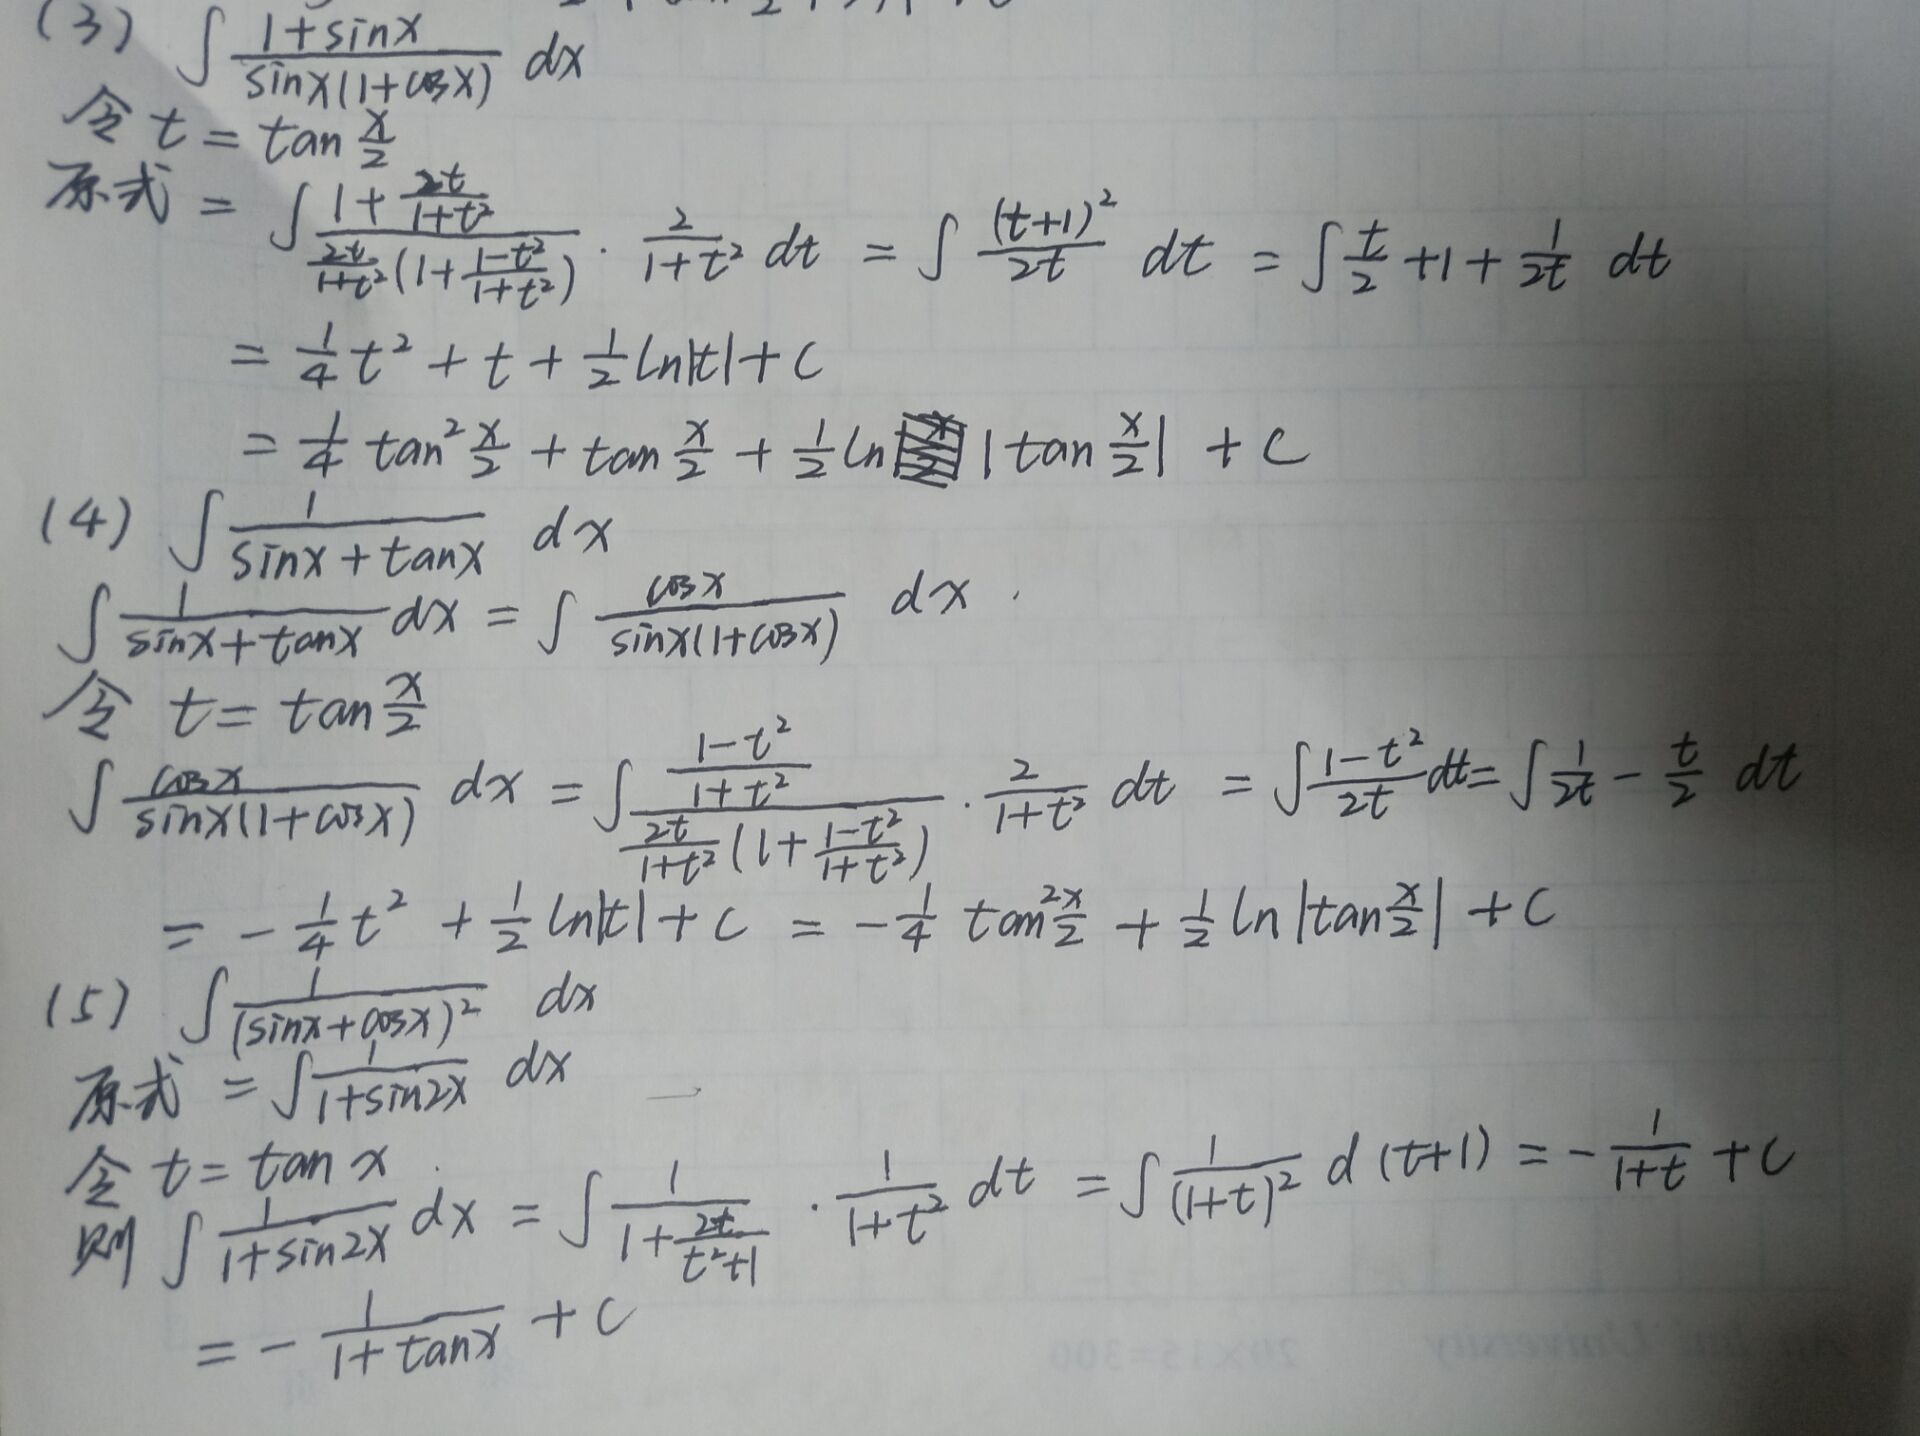 (3) ∫ (1+sinx)/(sinx(1+cosx)) dx
令 t = tan x/2
原式 = ∫ (1+ 2t/(1+t²))/(2t/(1+t²) (1+ (1-t²)/(1+t²))) · 2/(1+t²) dt = ∫ (t+1)²/2t dt = ∫ t/2 +1+ 1/2t dt
= 1/4 t² + t + 1/2 ln|t| + C
= 1/4 tan² x/2 + tan x/2 + 1/2 ln |tan x/2| + C
(4) ∫ 1/(sinx+tanx) dx
∫ 1/(sinx+tanx) dx = ∫ cosx/(sinx(1+cosx)) dx .
令 t = tan x/2
∫ cosx/(sinx(1+cosx)) dx = ∫ ((1-t²)/(1+t²))/(2t/(1+t²) (1+ (1-t²)/(1+t²))) · 2/(1+t²) dt = ∫ (1-t²)/2t dt = ∫ 1/2t - t/2 dt
= - 1/4 t² + 1/2 ln|t| + C = - 1/4 tan² x/2 + 1/2 ln |tan x/2| + C
(5) ∫ 1/(sinx+cosx)² dx
原式 = ∫ 1/(1+sin2x) dx
令 t = tan x
则 ∫ 1/(1+sin2x) dx = ∫ 1/(1+ 2t/(t²+1)) · 1/(1+t²) dt = ∫ 1/(1+t)² d(t+1) = - 1/(1+t) + C
= - 1/(1+tanx) + C
20×15=300
University